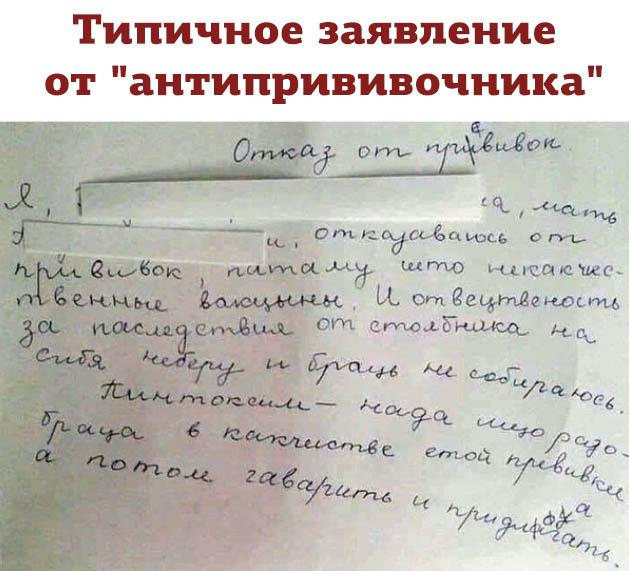 Типичное заявление
от "антипрививочника"
Отказ от превивок.
Я, са, мать
и, отказаваюсь от
прививок, патаму што некакчес-
твенные вакцыны. И отвецтвеность
за паследствия от столбника на
сибя неберу и браць не собираюсь.
Пинтоксим — нада ищо разо-
браца в какчистве етой превивки
а потом гаварить и придлагать.